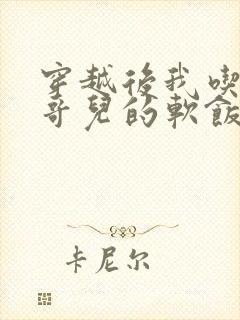 穿越後我喫
哥兒的軟飯
卡尼尔